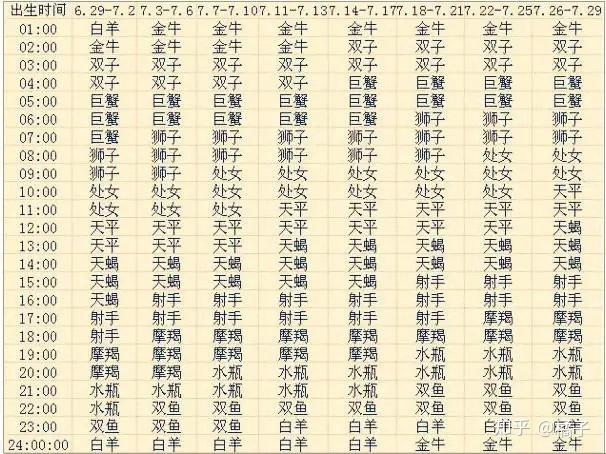 出生时间 6.29-7.2 7.3-7.6 7.7-7.10 7.11-7.13 7.14-7.17 7.18-7.21 7.22-7.25 7.26-7.29
01:00 白羊 金牛 金牛 金牛 金牛 金牛 金牛 金牛
02:00 金牛 金牛 金牛 金牛 双子 双子 双子 双子
03:00 双子 双子 双子 双子 双子 双子 双子 双子
04:00 双子 双子 双子 双子 巨蟹 巨蟹 巨蟹 巨蟹
05:00 巨蟹 巨蟹 巨蟹 巨蟹 巨蟹 巨蟹 巨蟹 巨蟹
06:00 巨蟹 巨蟹 巨蟹 巨蟹 巨蟹 狮子 狮子 狮子
07:00 巨蟹 狮子 狮子 狮子 狮子 狮子 狮子 狮子
08:00 狮子 狮子 狮子 狮子 狮子 狮子 处女 处女
09:00 狮子 狮子 处女 处女 处女 处女 处女 处女
10:00 处女 处女 处女 处女 处女 处女 处女 天平
11:00 处女 处女 处女 天平 天平 天平 天平 天平
12:00 天平 天平 天平 天平 天平 天平 天平 天蝎
13:00 天平 天平 天平 天蝎 天蝎 天蝎 天蝎 天蝎
14:00 天蝎 天蝎 天蝎 天蝎 天蝎 天蝎 天蝎 天蝎
15:00 天蝎 天蝎 天蝎 天蝎 天蝎 射手 射手 射手
16:00 天蝎 射手 射手 射手 射手 射手 射手 射手
17:00 射手 射手 射手 射手 射手 射手 摩羯 摩羯
18:00 射手 摩羯 摩羯 摩羯 摩羯 摩羯 摩羯 摩羯
19:00 摩羯 摩羯 摩羯 摩羯 摩羯 水瓶 水瓶 水瓶
20:00 摩羯 摩羯 水瓶 水瓶 水瓶 水瓶 水瓶 水瓶
21:00 水瓶 水瓶 水瓶 水瓶 水瓶 双鱼 双鱼 双鱼
22:00 水瓶 双鱼 双鱼 双鱼 双鱼 双鱼 双鱼 双鱼
23:00 双鱼 双鱼 双鱼 白羊 白羊 白羊 白羊 白羊
知乎
24:00:00 白羊 白羊 白羊 白羊 白羊 金牛 金牛 金牛